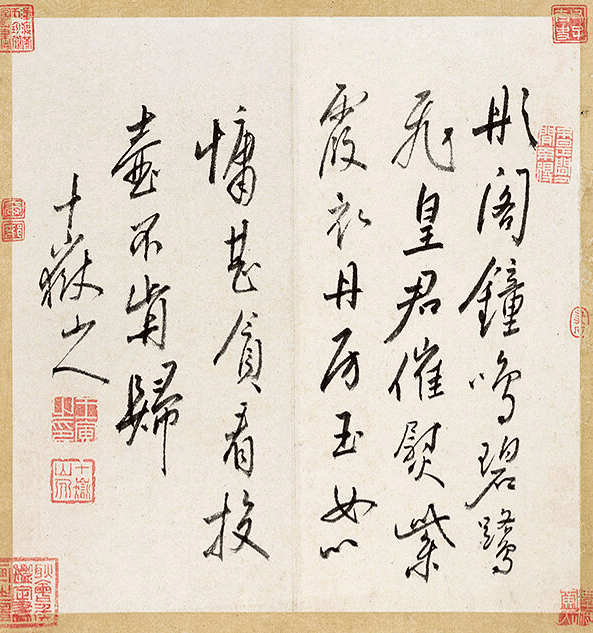 彤閣鐘鳴碧鷺
飛皇君催熨紫
霞衣丹房玉女心
慵甚貪看投
壺不肯歸
十嶽山人
王寅之印
十嶽山人